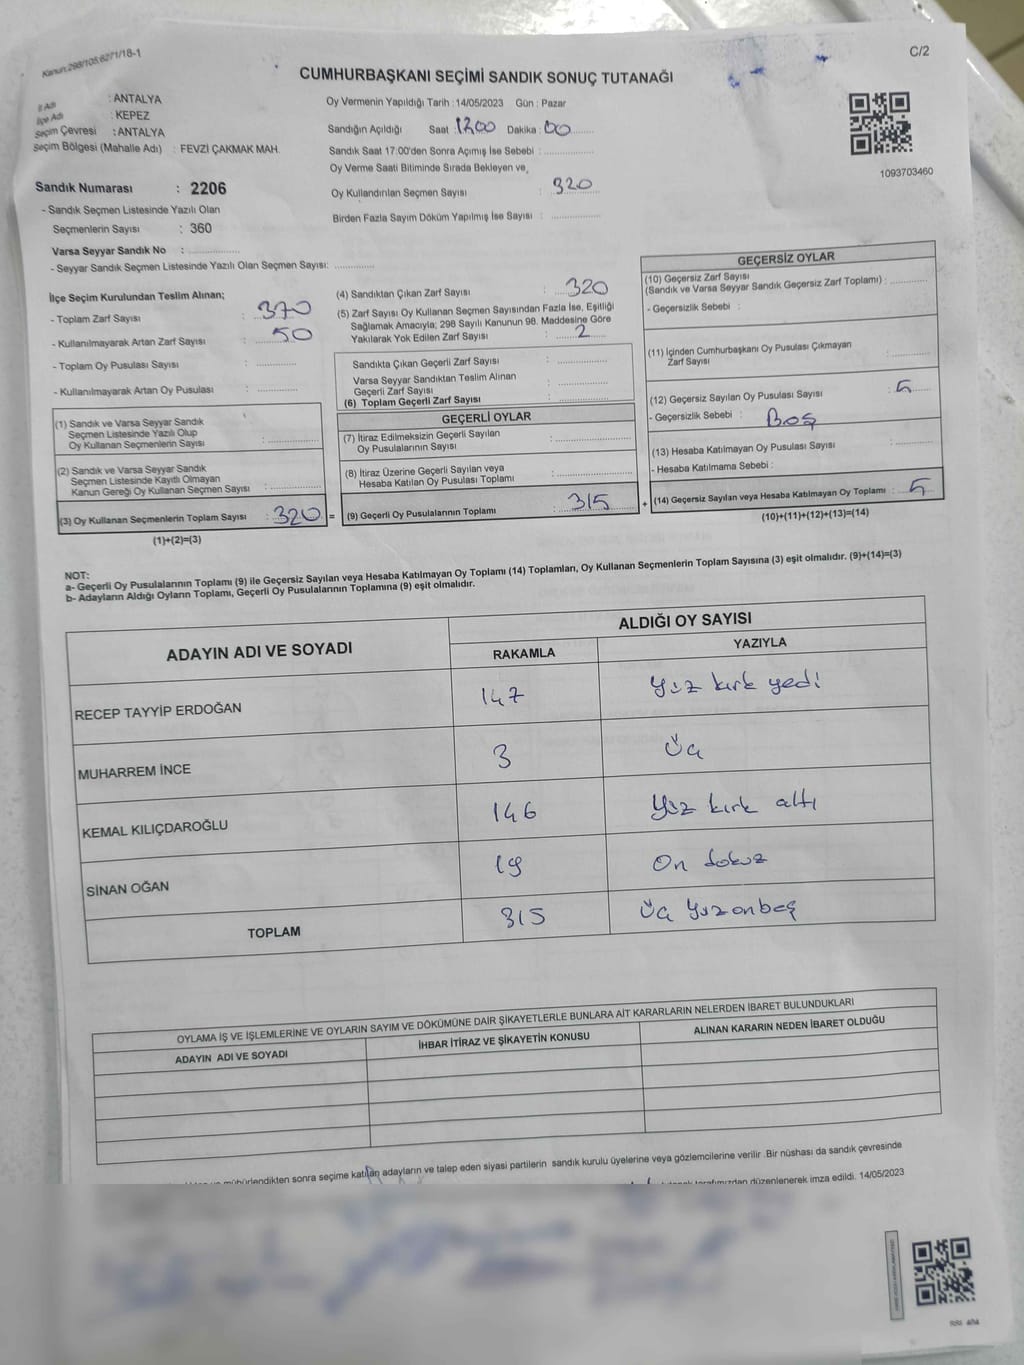 Kanun:298/105;6271/18-1
C/2
CUMHURBAŞKANI SEÇİMİ SANDIK SONUÇ TUTANAĞI
İl Adı : ANTALYA
İlçe Adı : KEPEZ
Seçim Çevresi : ANTALYA
Seçim Bölgesi (Mahalle Adı) : FEVZİ ÇAKMAK MAH.
Oy Vermenin Yapıldığı Tarih : 14/05/2023 Gün : Pazar
Sandığın Açıldığı Saat : 1700 Dakika : 00
Sandık Saat 17:00'den Sonra Açımış İse Sebebi :
Oy Verme Saati Bitiminde Sırada Bekleyen ve,
Oy Kullandırılan Seçmen Sayısı : 320
Birden Fazla Sayım Döküm Yapılmış İse Sayısı :
1093703460
Sandık Numarası : 2206
- Sandık Seçmen Listesinde Yazılı Olan
Seçmenlerin Sayısı : 360
Varsa Seyyar Sandık No :
- Seyyar Sandık Seçmen Listesinde Yazılı Olan Seçmen Sayısı:
İlçe Seçim Kurulundan Teslim Alınan;
- Toplam Zarf Sayısı : 370
- Kullanılmayarak Artan Zarf Sayısı : 50
- Toplam Oy Pusulası Sayısı :
- Kullanılmayarak Artan Oy Pusulası :
(1) Sandık ve Varsa Seyyar Sandık
Seçmen Listesinde Yazılı Olup
Oy Kullanan Seçmenlerin Sayısı :
(2) Sandık ve Varsa Seyyar Sandık
Seçmen Listesinde Kayıtlı Olmayan
Kanun Gereği Oy Kullanan Seçmen Sayısı :
(3) Oy Kullanan Seçmenlerin Toplam Sayısı : 320 =
(1)+(2)=(3)
(4) Sandıktan Çıkan Zarf Sayısı : 320
(5) Zarf Sayısı Oy Kullanan Seçmen Sayısından Fazla İse, Eşitliği
Sağlamak Amacıyla; 298 Sayılı Kanunun 98. Maddesine Göre
Yakılarak Yok Edilen Zarf Sayısı : 2
Sandıkta Çıkan Geçerli Zarf Sayısı :
Varsa Seyyar Sandıktan Teslim Alınan
Geçerli Zarf Sayısı :
(6) Toplam Geçerli Zarf Sayısı :
GEÇERLİ OYLAR
(7) İtiraz Edilmeksizin Geçerli Sayılan
Oy Pusulalarının Sayısı :
(8) İtiraz Üzerine Geçerli Sayılan veya
Hesaba Katılan Oy Pusulası Toplamı :
(9) Geçerli Oy Pusulalarının Toplamı : 315 +
GEÇERSİZ OYLAR
(10) Geçersiz Zarf Sayısı
(Sandık ve Varsa Seyyar Sandık Geçersiz Zarf Toplamı) :
- Geçersizlik Sebebi :
(11) İçinden Cumhurbaşkanı Oy Pusulası Çıkmayan
Zarf Sayısı :
(12) Geçersiz Sayılan Oy Pusulası Sayısı : 5
- Geçersizlik Sebebi : Boş
(13) Hesaba Katılmayan Oy Pusulası Sayısı :
- Hesaba Katılmama Sebebi :
(14) Geçersiz Sayılan veya Hesaba Katılmayan Oy Toplamı : 5
(10)+(11)+(12)+(13)=(14)
NOT:
a- Geçerli Oy Pusulalarının Toplamı (9) ile Geçersiz Sayılan veya Hesaba Katılmayan Oy Toplamı (14) Toplamları, Oy Kullanan Seçmenlerin Toplam Sayısına (3) eşit olmalıdır. (9)+(14)=(3)
b- Adayların Aldığı Oyların Toplamı, Geçerli Oy Pusulalarının Toplamına (9) eşit olmalıdır.
ADAYIN ADI VE SOYADI
ALDIĞI OY SAYISI
RAKAMLA YAZIYLA
RECEP TAYYİP ERDOĞAN 147 Yüz kırk yedi
MUHARREM İNCE 3 Üç
KEMAL KILIÇDAROĞLU 146 Yüz kırk altı
SİNAN OĞAN 19 On dokuz
TOPLAM 315 Üç Yüzonbeş
OYLAMA İŞ VE İŞLEMLERİNE VE OYLARIN SAYIM VE DÖKÜMÜNE DAİR ŞİKAYETLERLE BUNLARA AİT KARARLARIN NELERDEN İBARET BULUNDUKLARI
ADAYIN ADI VE SOYADI İHBAR İTİRAZ VE ŞİKAYETİN KONUSU ALINAN KARARIN NEDEN İBARET OLDUĞU
mühürlendikten sonra seçime katılan adayların ve talep eden siyasi partilerin sandık kurulu üyelerine veya gözlemcilerine verilir .Bir nüshası da sandık çevresinde
tarafımızdan düzenlenerek imza edildi. 14/05/2023